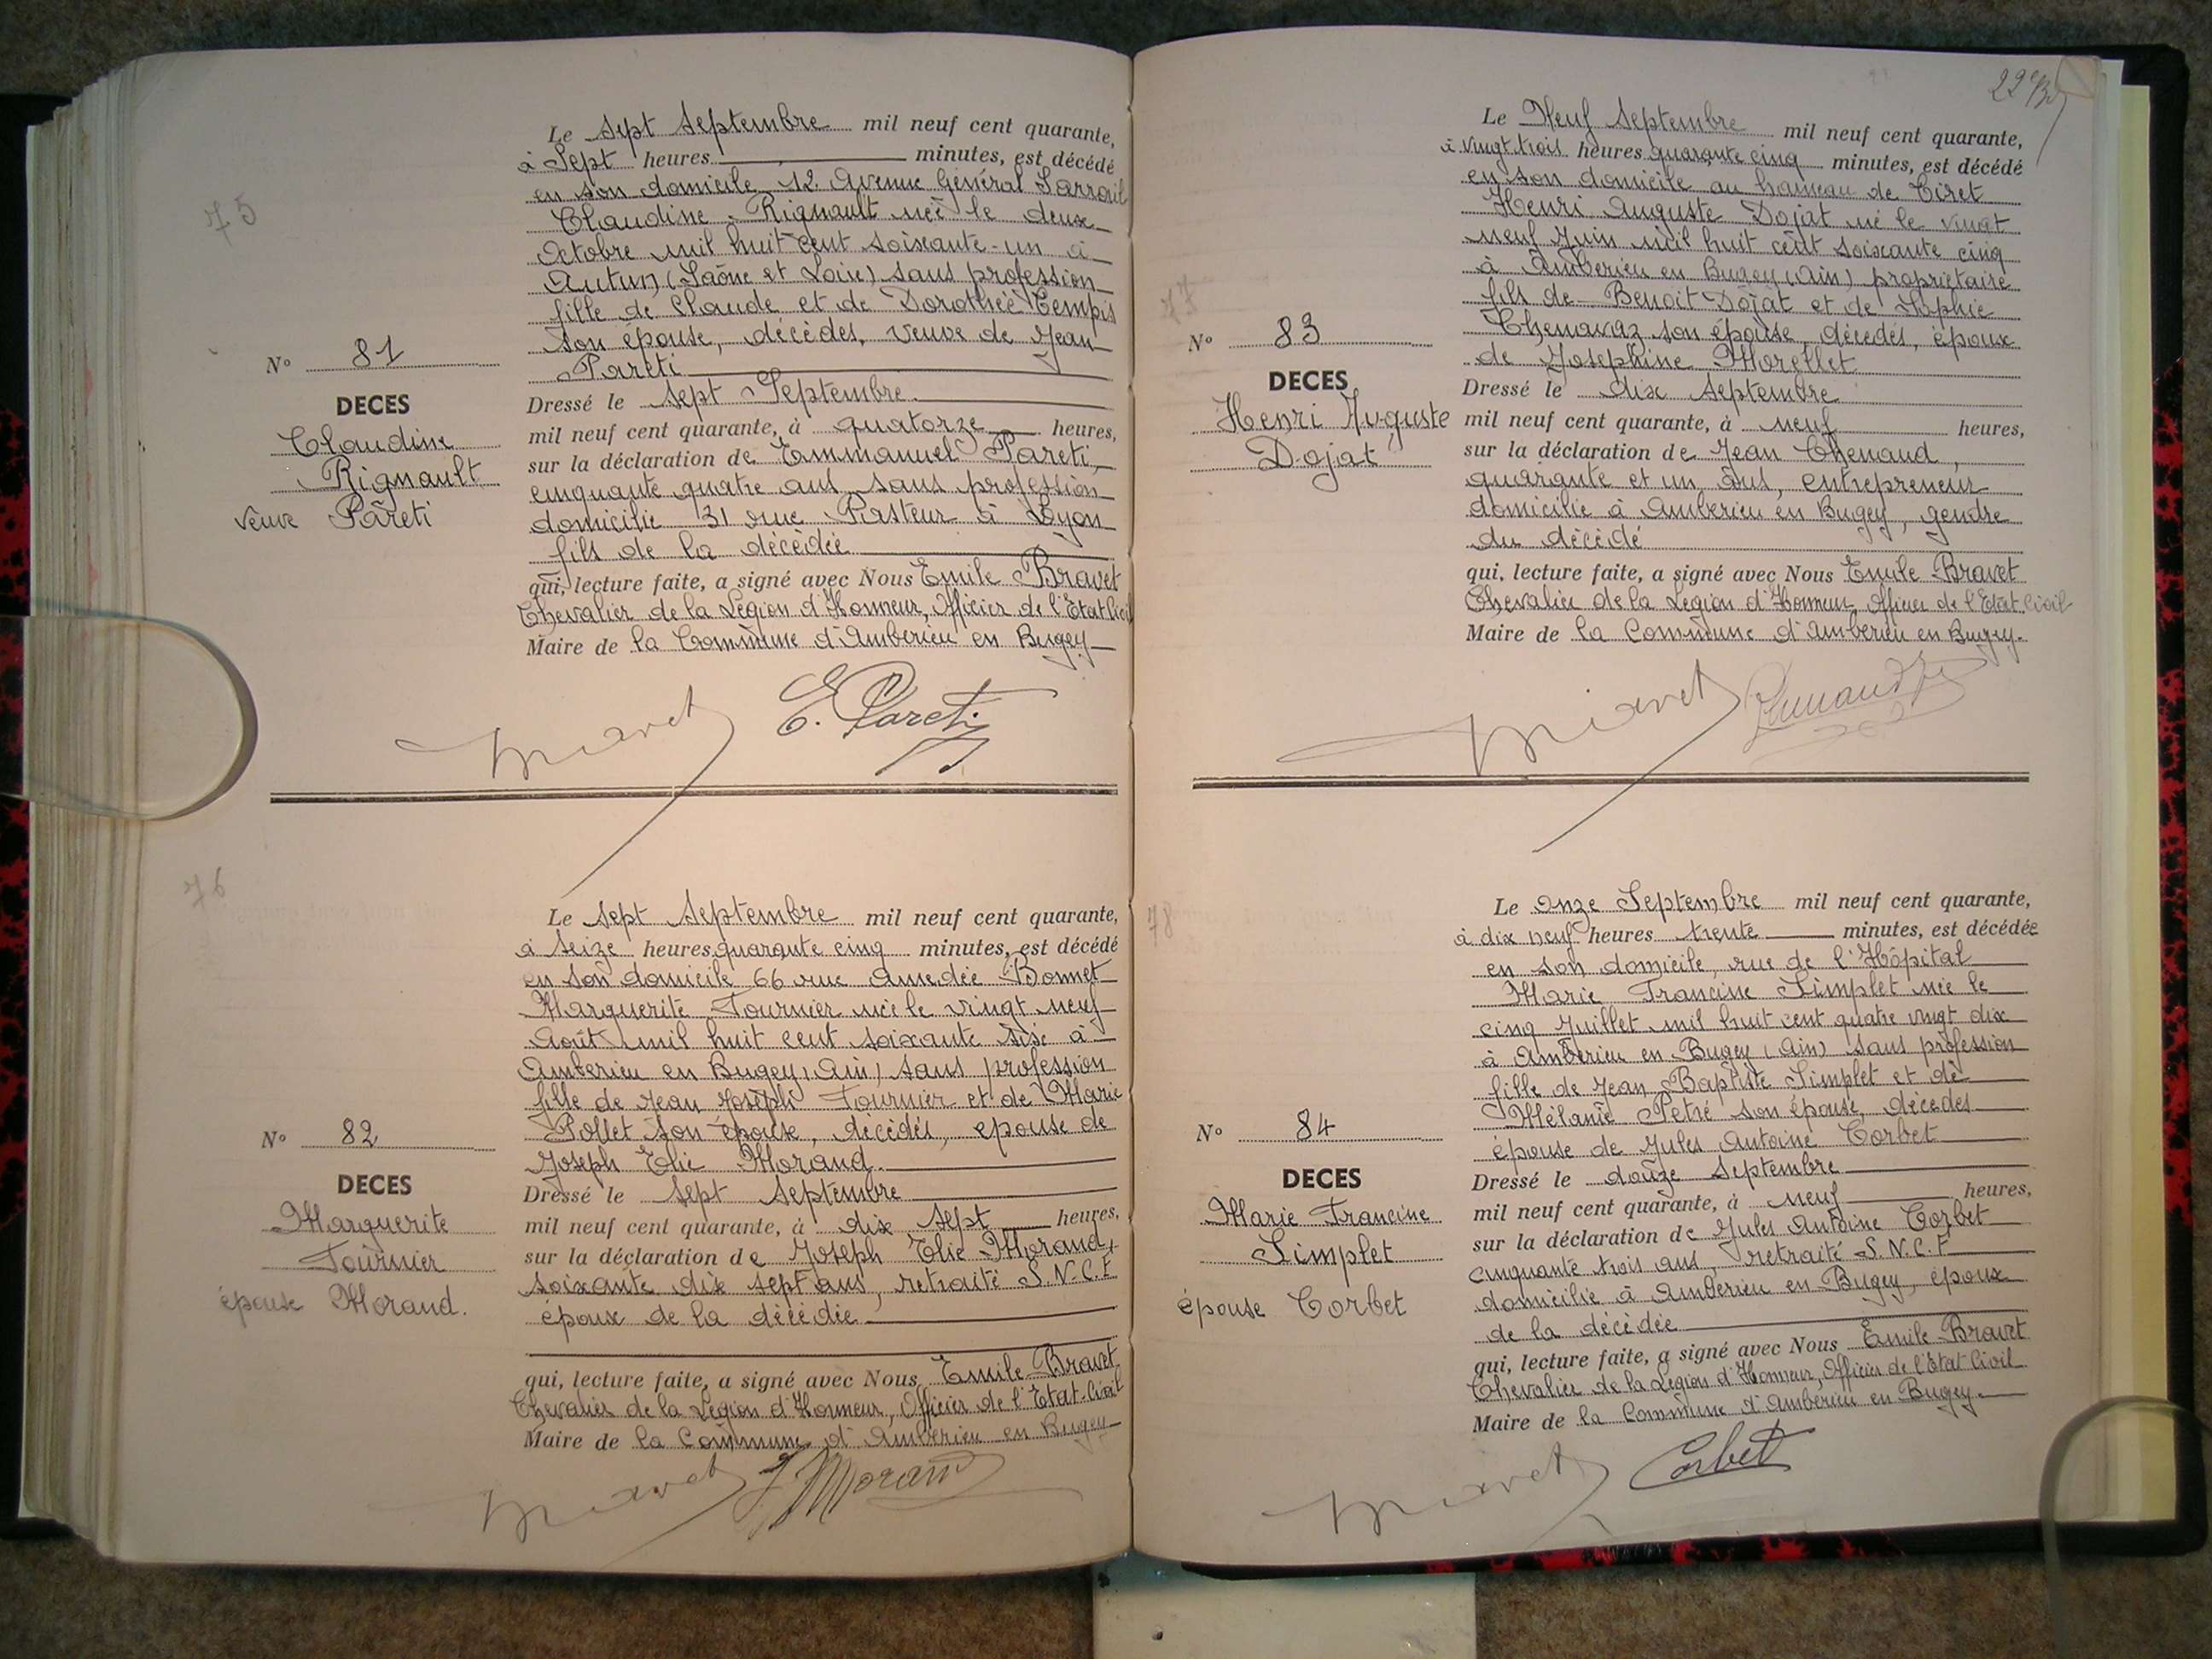 75
N° 81
DECES
Claudine
Rignault
veuve Pareti
Le sept Septembre mil neuf cent quarante,
à Sept heures minutes, est décédé
en son domicile, 12 Avenue Général Sarrail
Claudine Rignault née le deux
Octobre mil huit cent soixante-un à
Autun (Saône et Loire) sans profession
fille de Claude et de Dorothée Tempis
son épouse, décédés, veuve de Jean
Pareti
Dressé le sept Septembre
mil neuf cent quarante, à quatorze heures,
sur la déclaration de Emmanuel Pareti,
cinquante quatre ans, sans profession
domicilié 31 rue Pasteur à Lyon
fils de la décédée
qui, lecture faite, a signé avec Nous Emile Bravet
Chevalier de la Légion d'Honneur, Officier de l'Etat Civil
Maire de la Commune d'Amberieu en Bugey
Bravet E. Pareti
76
N° 82
DECES
Marguerite
Fournier
épouse Morand.
Le sept Septembre mil neuf cent quarante,
à seize heures quarante cinq minutes, est décédé
en son domicile 66 rue Amédée Bonnet
Marguerite Fournier née le vingt neuf
Août mil huit cent soixante six à
Amberieu en Bugey (Ain) sans profession
fille de Jean Joseph Fournier et de Marie
Pollet son épouse, décédés, épouse de
Joseph Elie Morand.
Dressé le sept Septembre
mil neuf cent quarante, à dix sept heures,
sur la déclaration de Joseph Elie Morand,
soixante dix sept ans, retraité S.N.C.F
époux de la décédée
qui, lecture faite, a signé avec Nous Emile Bravet
Chevalier de la Légion d'Honneur, Officier de l'Etat-Civil
Maire de la Commune d'Amberieu en Bugey
Bravet J Morand
77
N° 83
DECES
Henri Auguste
Dojat
Le Neuf Septembre mil neuf cent quarante,
à vingt trois heures quarante cinq minutes, est décédé
en son domicile au hameau de Tiret
Henri Auguste Dojat né le vingt
neuf Juin mil huit cent soixante cinq
à Amberieu en Bugey (Ain) propriétaire
fils de Benoit Dojat et de Sophie
Chenavaz son épouse, décédés, époux
de Josephine Morellet
Dressé le dix Septembre
mil neuf cent quarante, à neuf heures,
sur la déclaration de Jean Chenaud,
quarante et un ans, entrepreneur
domicilié à Amberieu en Bugey, gendre
du décédé
qui, lecture faite, a signé avec Nous Emile Bravet
Chevalier de la Légion d'Honneur, Officier de l'Etat Civil
Maire de la Commune d'Amberieu en Bugey.
Bravet
78
N° 84
DECES
Marie Francine
Simplet
épouse Corbet
Le onze Septembre mil neuf cent quarante,
à dix neuf heures trente minutes, est décédée
en son domicile, rue de l'Hôpital
Marie Francine Simplet née le
cinq Juillet mil huit cent quatre vingt dix
à Amberieu en Bugey (Ain) sans profession
fille de Jean Baptiste Simplet et de
Mélanie Petré son épouse, décédés
épouse de Jules Antoine Corbet
Dressé le douze Septembre
mil neuf cent quarante, à neuf heures,
sur la déclaration de Jules Antoine Corbet
cinquante trois ans, retraité S.N.C.F
domicilié à Amberieu en Bugey, époux
de la décédée
qui, lecture faite, a signé avec Nous Emile Bravet
Chevalier de la Légion d'Honneur, Officier de l'Etat Civil
Maire de la Commune d'Amberieu en Bugey.
Bravet Corbet